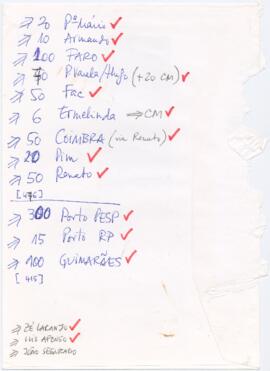 ⇒ 20 Pº Mário ✓
⇒ 10 Armando ✓
⇒ 100 FARO ✓
⇒ 70 Paula/Hugo (+20 CM) ✓
⇒ 50 Fac ✓
⇒ 6 Ermelinda ⇒ CM ✓
⇒ 50 COIMBRA (via Renato) ✓
⇒ 20 Pim ✓
⇒ 50 Renato ✓
⇒ 300 Porto PESP ✓
⇒ 15 Porto RP ✓
⇒ 100 GUIMARÃES ✓
[415]
⇒ ZÉ LARANJO ✓
⇒ LUÍS AFONSO ✓
⇒ JOÃO SEGURADO